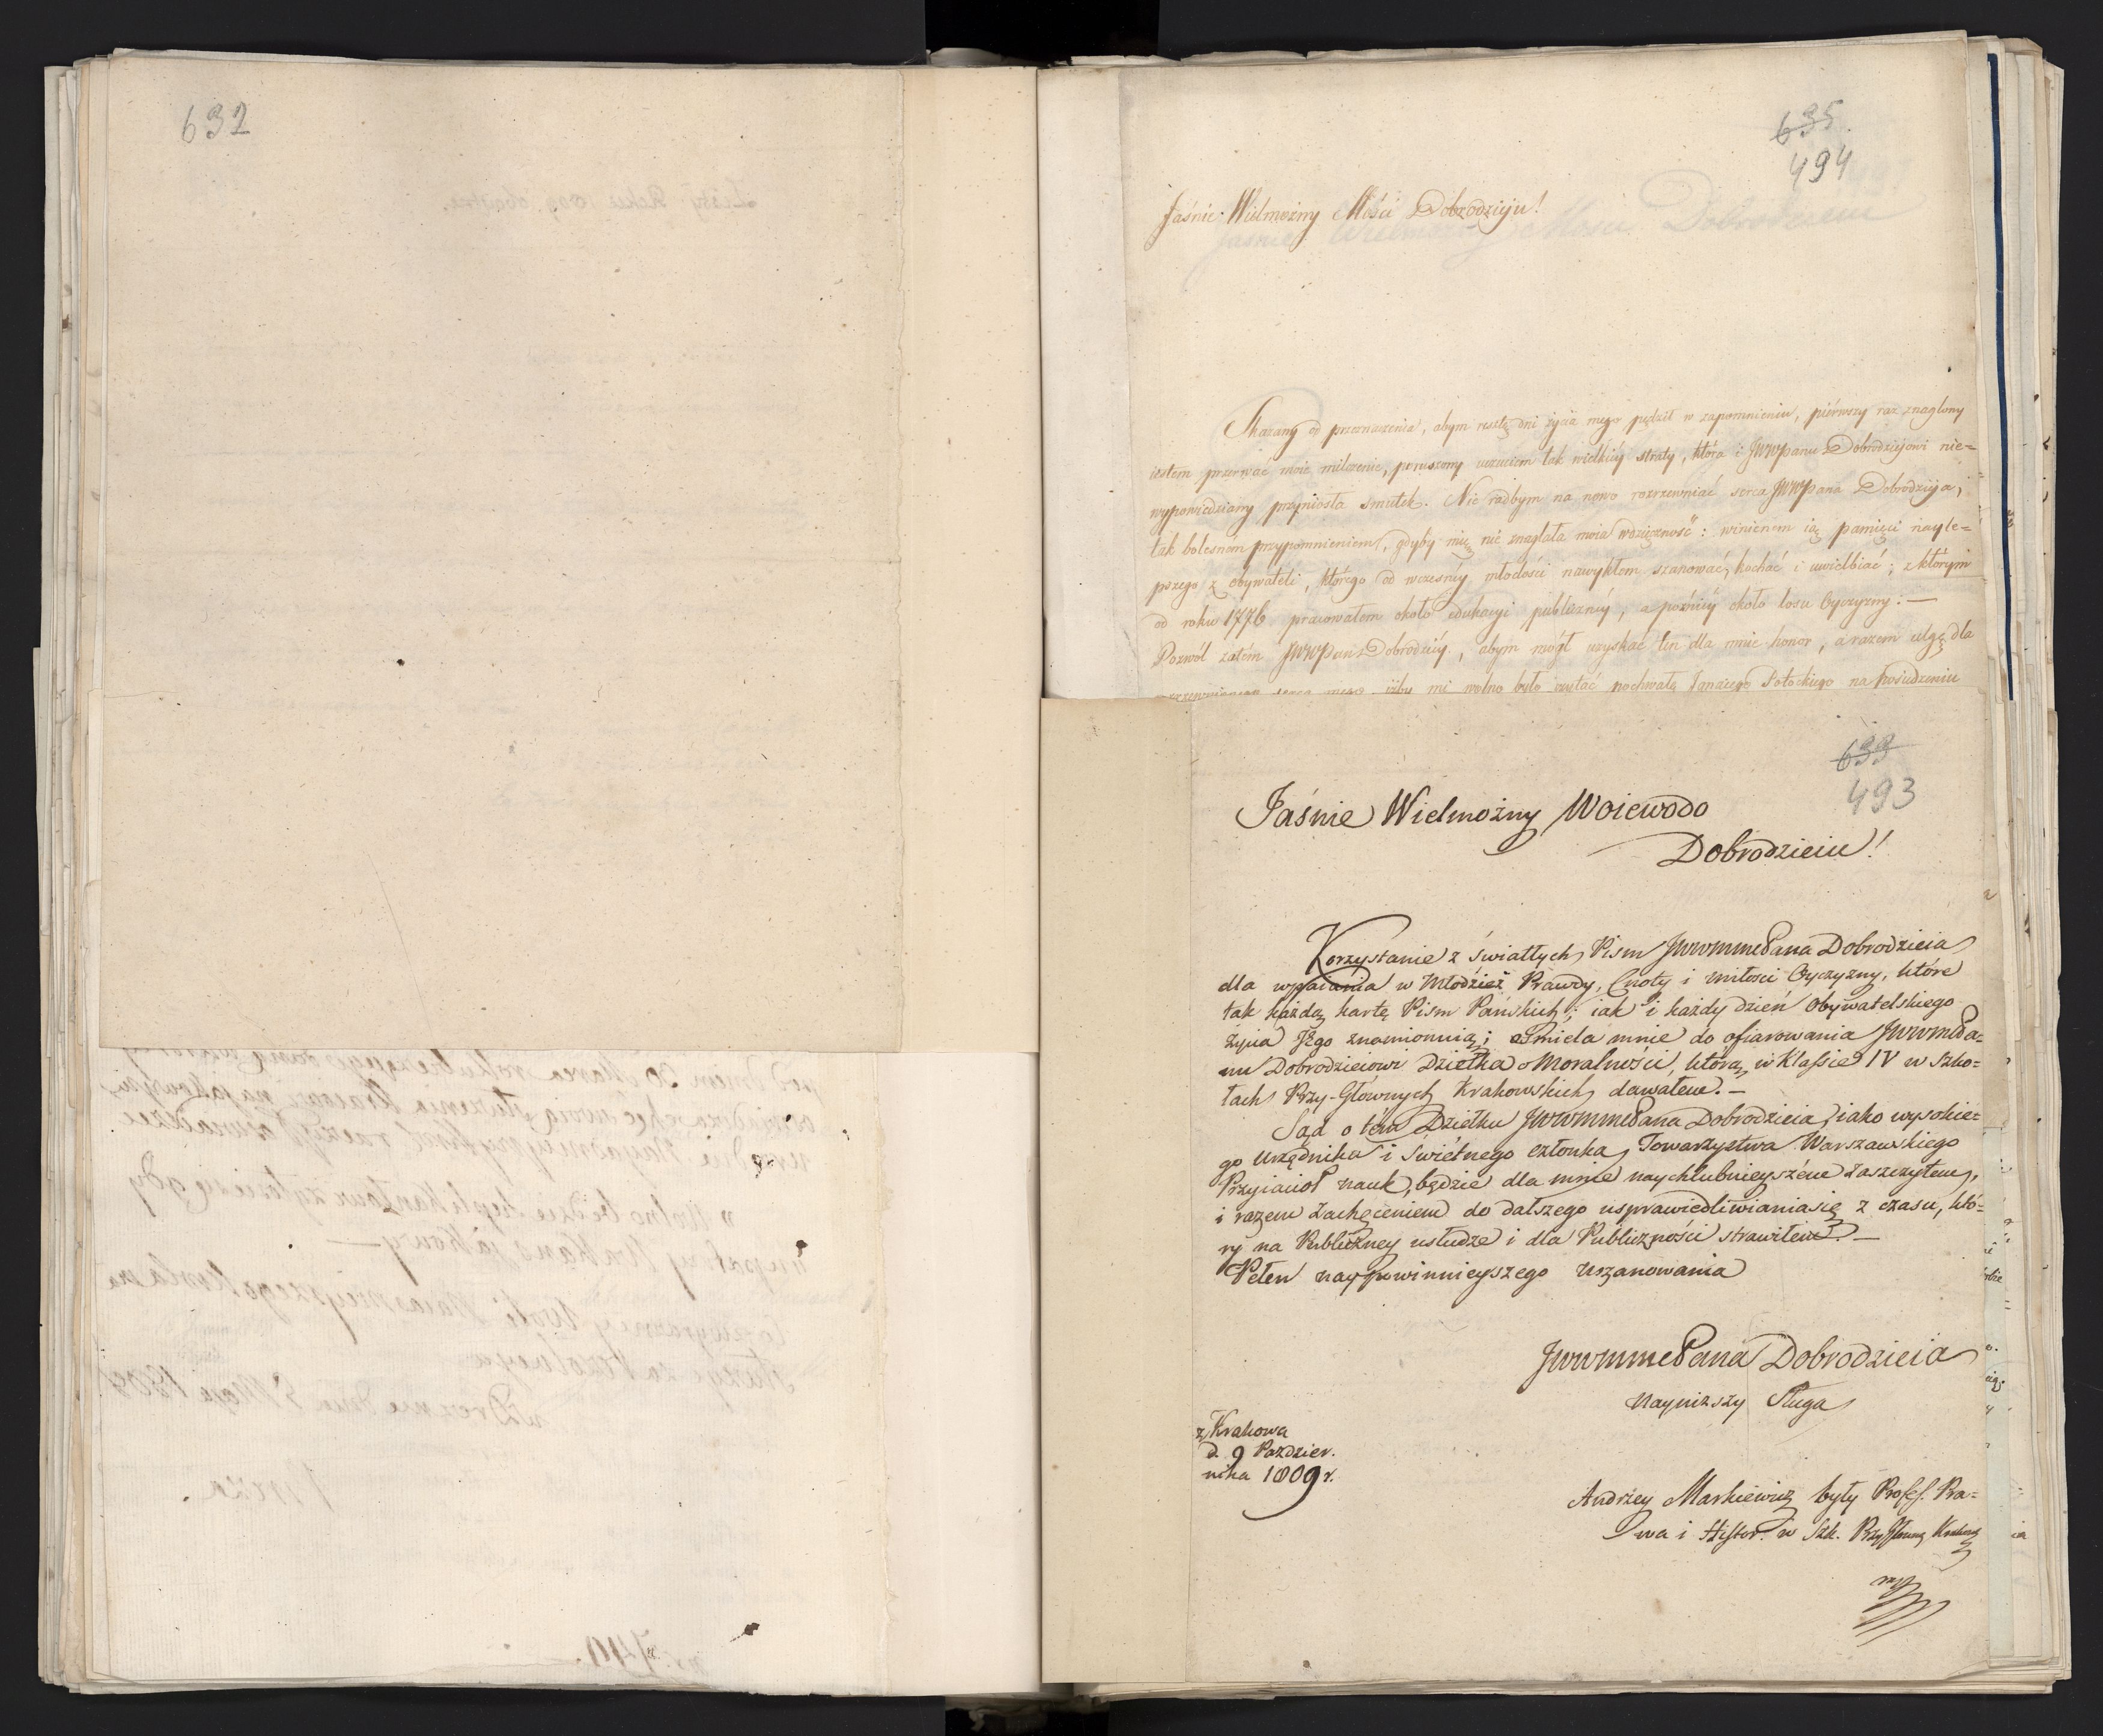 632
635.
494
Jaśnie Wielmożny Mości Dobrodzieju!
Skazany od przeznaczenia, abym resztę dni życia mego pędził w zapomnieniu, piérwszy raz znaglony
iestem przerwać moie milczenie, poruszony uczuciem tak wielkiéy straty, która i JWWPanu Dobrodziejowi nie=
wypowiedziany przyniosła smutek. Nie radbym na nowo rozrzewniać serca JWWPana Dobrodzieja,
tak bolesném przypomnieniem, gdyby mię nie znaglała moia wdzięczność: winienem ią pamięci nayle=
pszego z obywateli, którego od wczesnéy młodości nawykłem szanować, kochać i uwielbiać; z którym
od roku 1776 pracowałem około edukacyi publicznéy, a poźniéy około losu Oyczyzny: —
Pozwól zatém JWWPanie Dobrodzieju, abym mógł uzyskać ten dla mnie honor, a razem ulgę dla
serca mego, iżby mi wolno było czytać pochwałę Ignacego Potockiego na Posiedzeniu
633
493
Jaśnie Wielmożny Woiewodo
Dobrodzieiu!
Korzystanie z światłych Pism JWWmmcPana Dobrodzieia
dla wpaiania w Młodzież Prawdy, Cnoty i miłosci Oyczyzny, które
tak każdą kartę Pism Pańskich; iak i każdy dzień Obywatelskiego
życia Jego znamionuią; ośmiela mnie do ofiarowania JWWmPa=
nu Dobrodzieiowi Dziełka o Moralności, którą w Klassie IV w Szko=
łach Przy-Głównych Krakowskich dawałem. —
Sąd o tém Dziełku JWWmmcPana Dobrodzieia, iako wysokie=
go Urzędnika i świetnego członka Towarzystwa Warszawskiego
Przyiaciół nauk, będzie dla mnie naychlubnieyszém zaszczytem,
i razem zachęceniem do dalszego usprawiedliwiania się z czasu, któ=
ry na Publiczney usłudze i dla Publiczności strawiłem. —
Pełen naypowinnieyszego uszanowania
JWWmmcPana Dobrodzieia
nayniższy Sługa
z Krakowa
d. 9 Paździer.
nika 1809 r.
Andrzey Markiewicz były Profess. Pra=
wa i Histor. w Szk. Przy Główn. Krakow.
mp